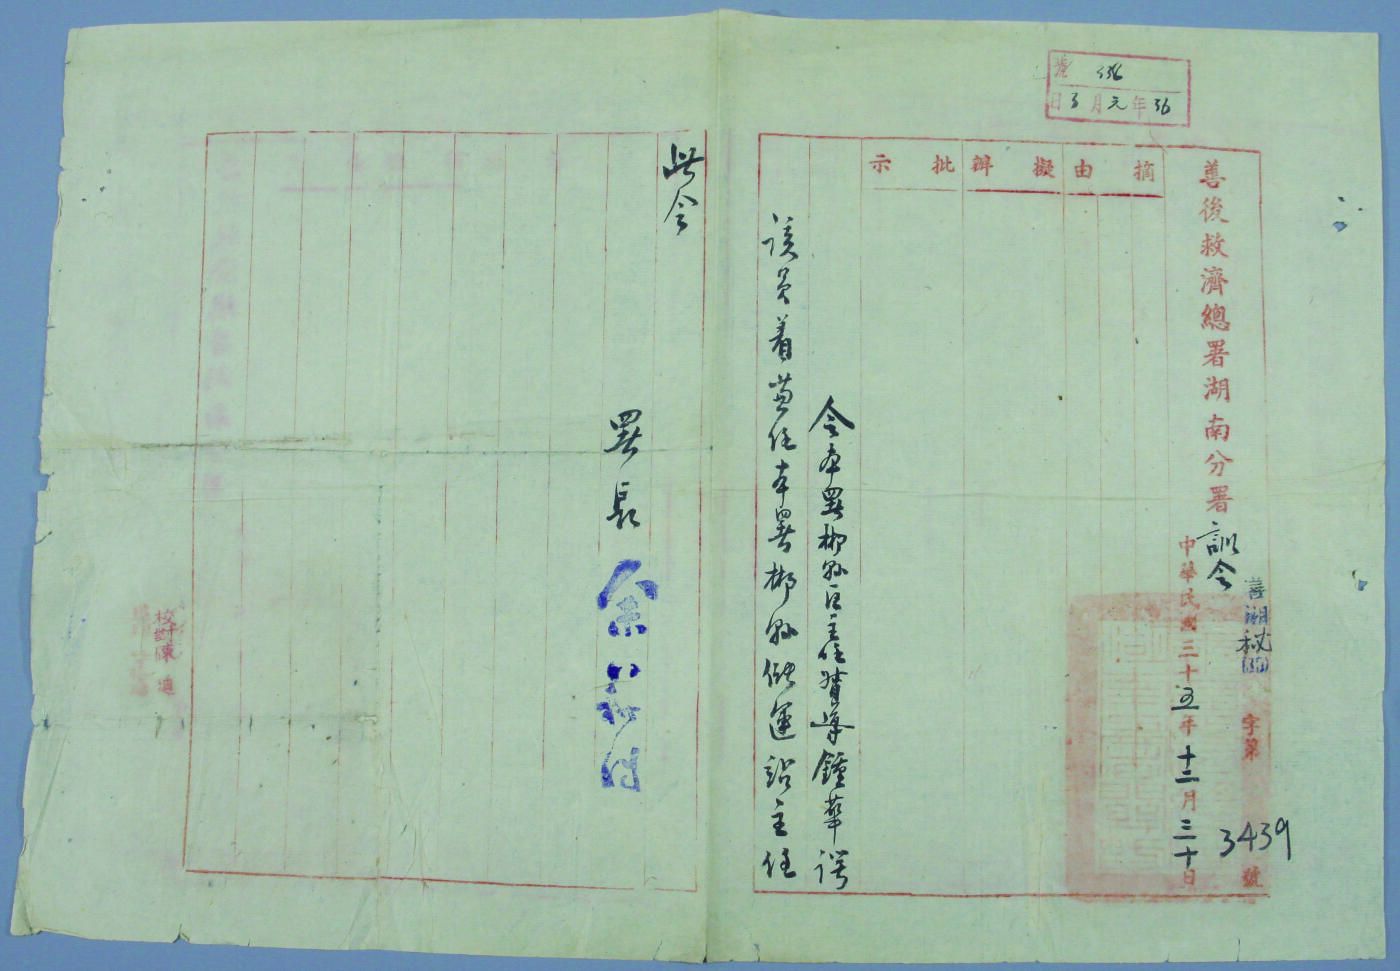 號 436
36年元月3日
善後救濟總署湖南分署訓令
善湖秘(35)字第3439號
中華民國三十五年十二月三十日
摘由
擬辦
批示
令本署郴縣
鍾華諤
該員着兼任本署郴縣儲運站主任
此令
署長余籍傳
校對陳